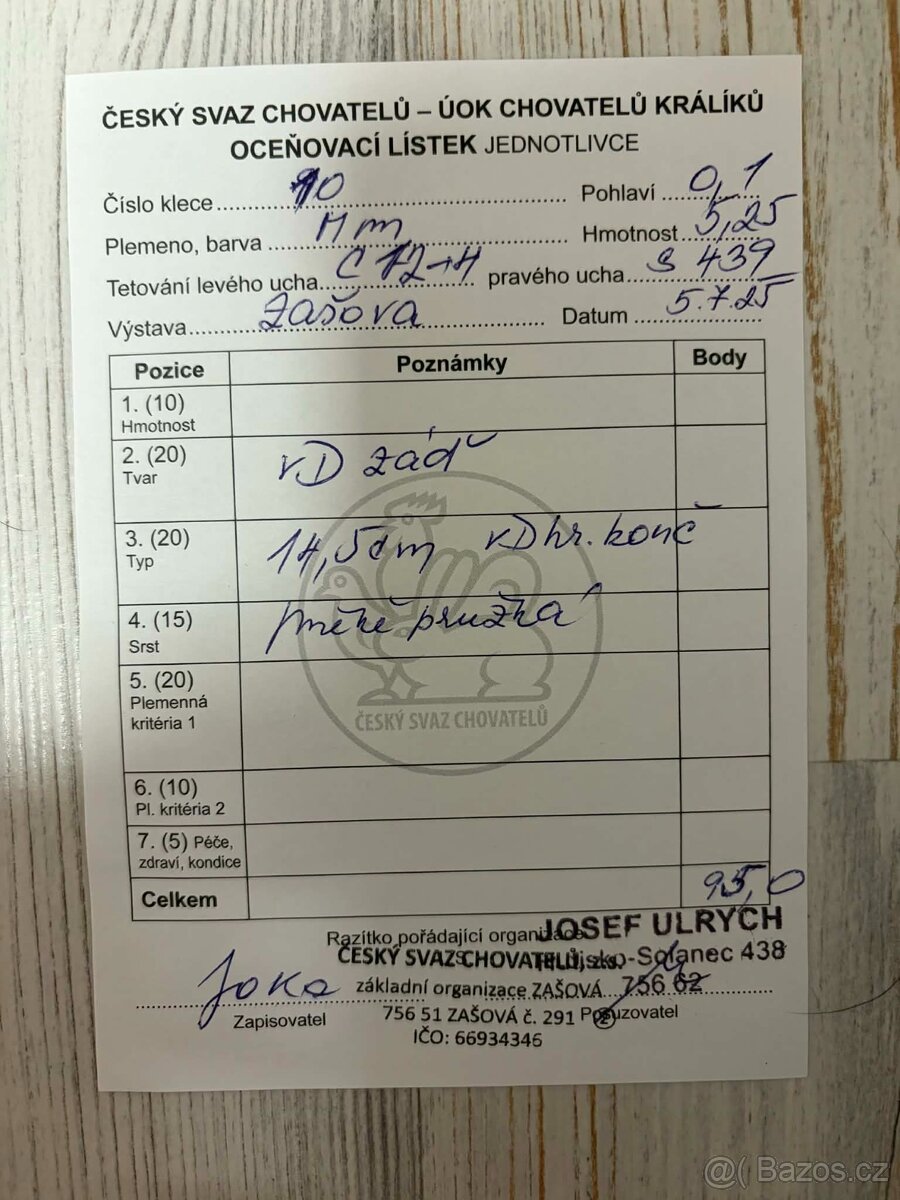 ČESKÝ SVAZ CHOVATELŮ – ÚOK CHOVATELŮ KRÁLÍKŮ
OCEŇOVACÍ LÍSTEK JEDNOTLIVCE
Číslo klece 10 Pohlaví 0,1
Plemeno, barva Mm Hmotnost 5,25
Tetování levého ucha pravého ucha S 439
Výstava Zašova Datum 5.7.25
Pozice Poznámky Body
1. (10)
Hmotnost
2. (20) vD záď
Tvar
3. (20) 14,5cm vD hr. konč
Typ
4. (15) méně pružná
Srst
5. (20)
Plemenná
kritéria 1
ČESKÝ SVAZ CHOVATELŮ
6. (10)
Pl. kritéria 2
7. (5) Péče,
zdraví, kondice
Celkem 95,0
JOSEF ULRYCH
Razítko pořádající organizace
ČESKÝ SVAZ CHOVATELŮ, z.s. Solanec 438
základní organizace ZAŠOVÁ 756 62
Zapisovatel 756 51 ZAŠOVÁ č. 291 Posuzovatel
IČO: 66934346
@( Bazos.cz